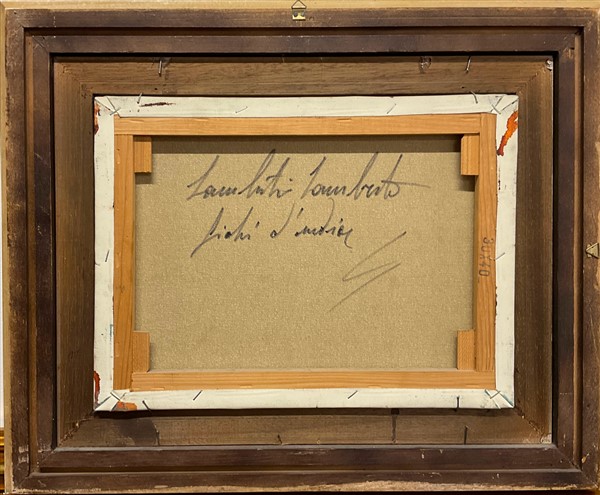 Lamberti Lamberto
fichi d'india
30x40